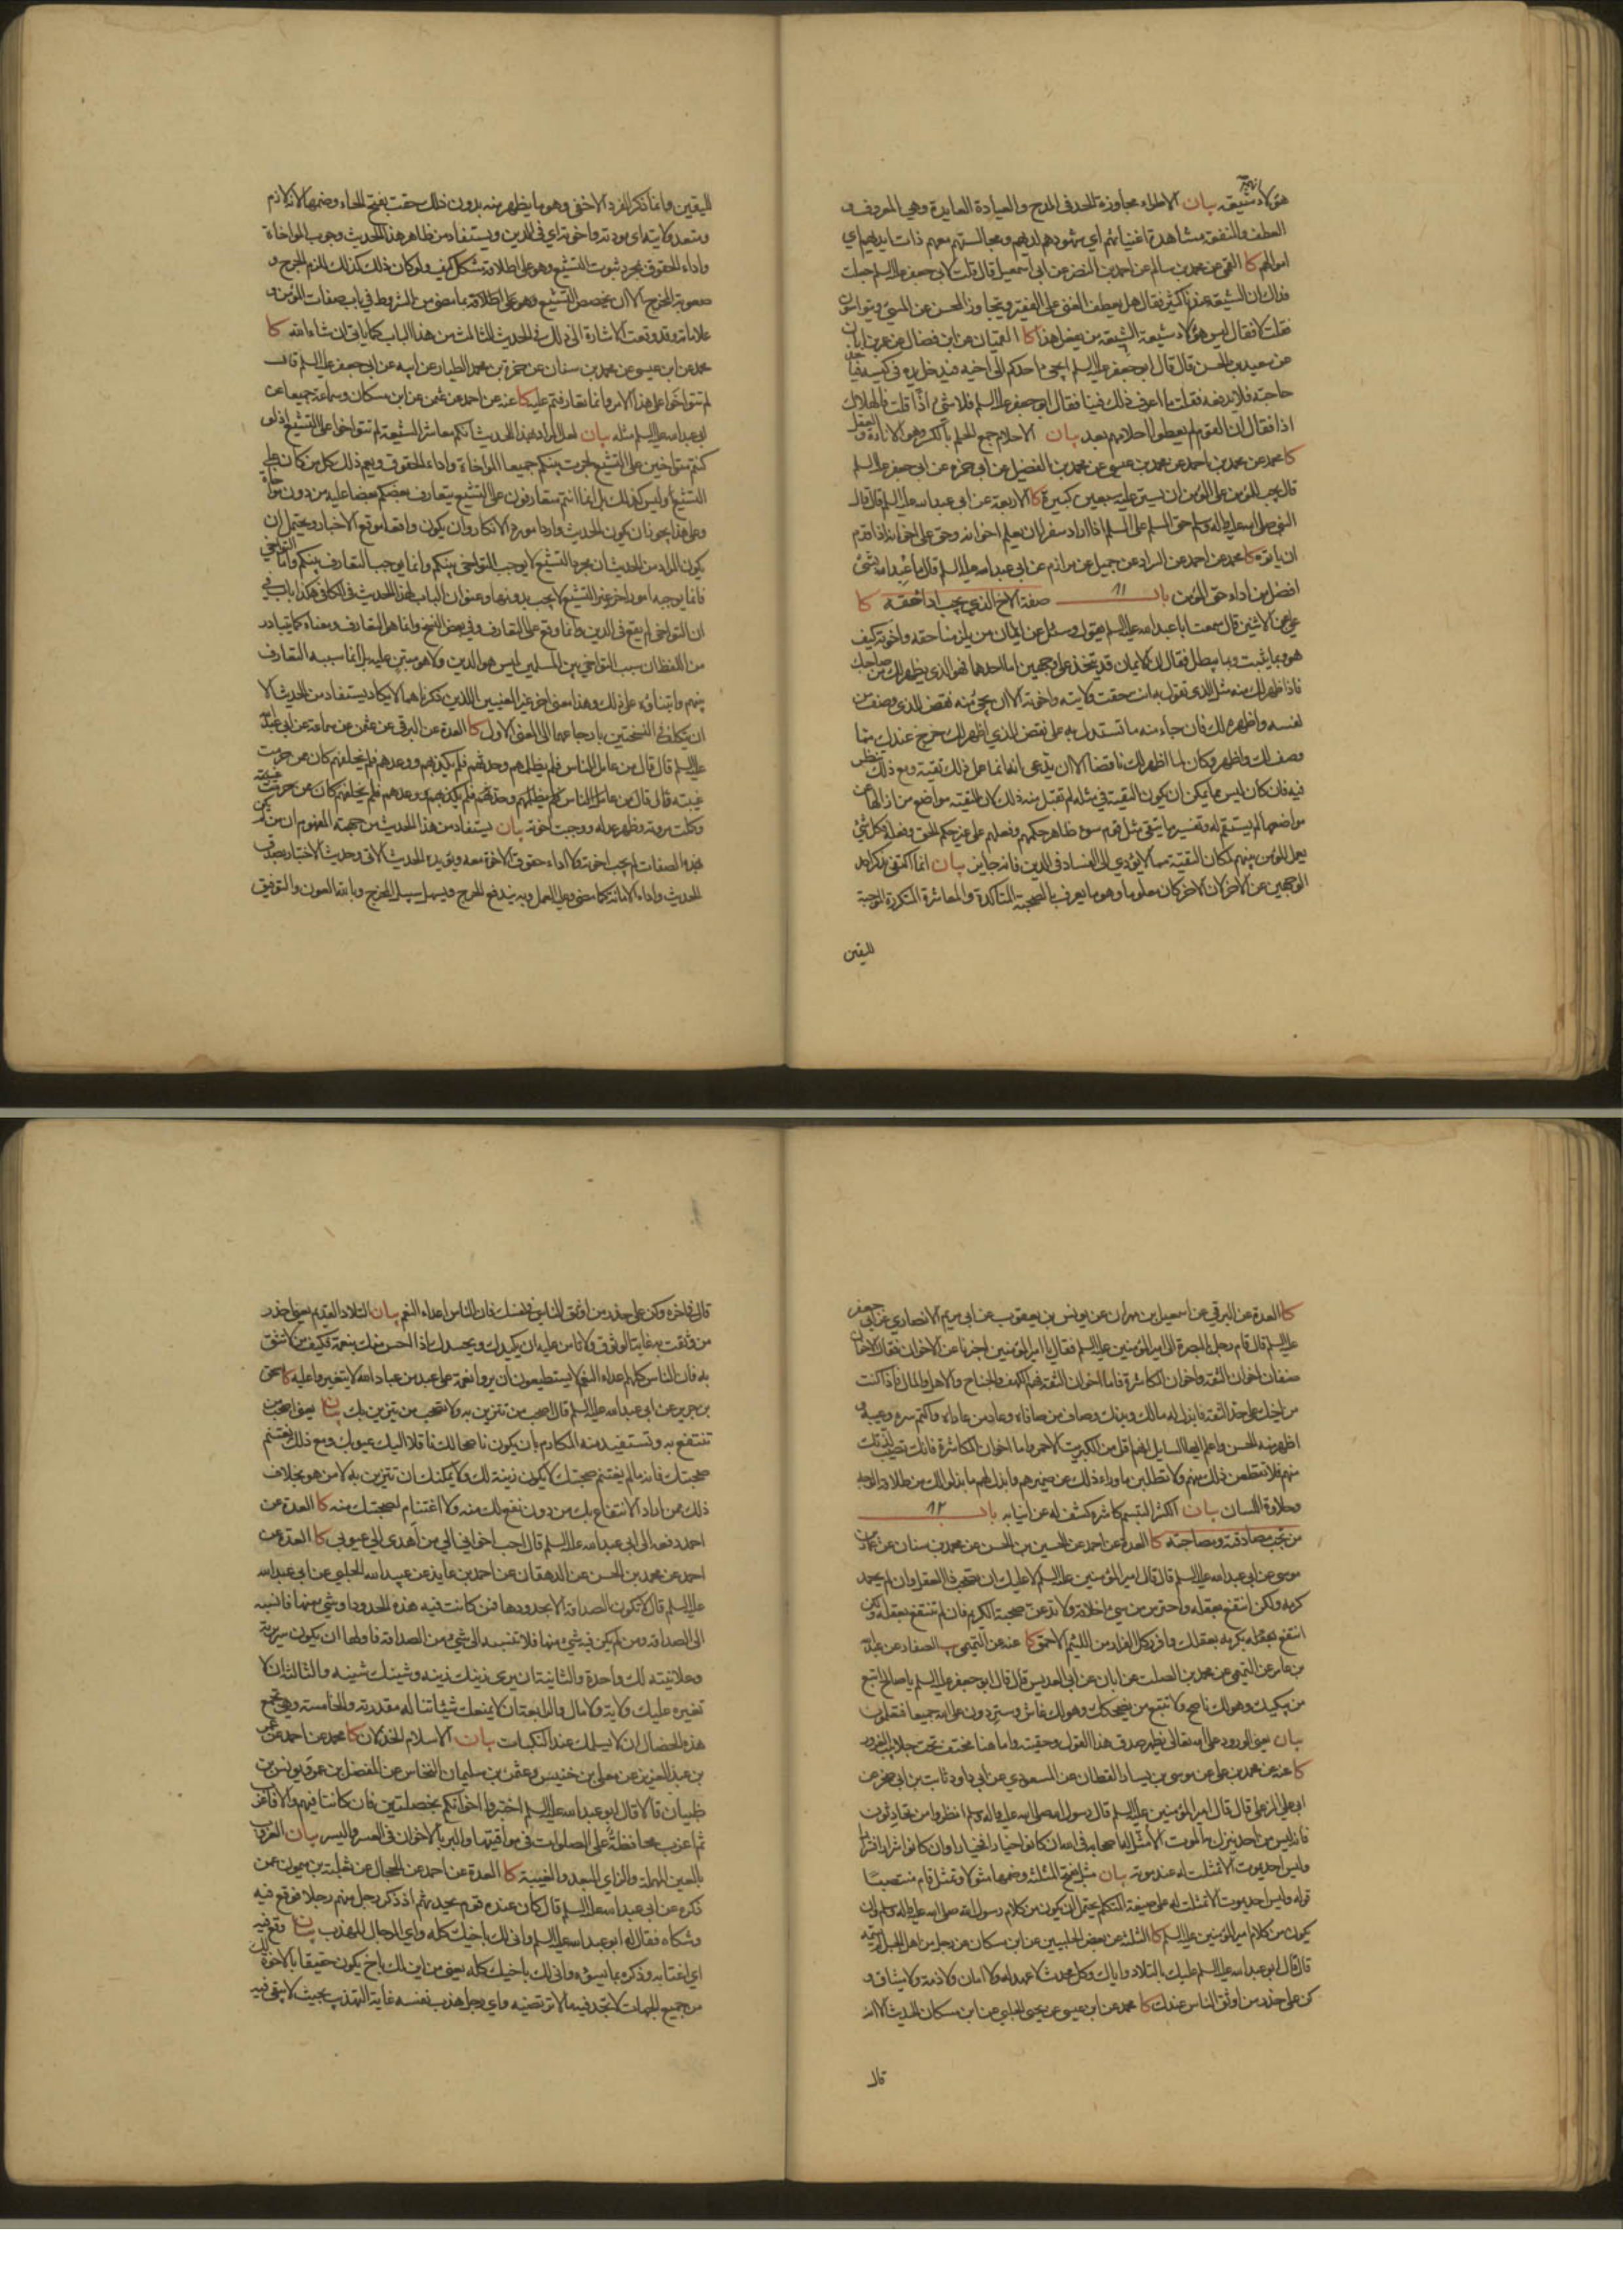 هؤلاء شيعة بيان الاطراء مجاوزة الحد في المدح والعيادة العايدة وهي المعروف و
العطف والمنفعة ومشاهدة اغنيائهم اي شهودهم لديهم ومجالستهم معهم ذات ايديهم اي
اموالهم كا القمي عن محمد بن سالم عن احمد بن النضر عن ابي اسمعيل قال قلت لابي جعفر عليه السلم جعلت
فداك ان الشيعة عندنا كثير فقال هل يعطف الغني على الفقير ويتجاوز المحسن عن المسيء ويتواسون
فقلت لا فقال ليس هؤلاء شيعة الشيعة من يفعل هذا كا العميان عن ابن فضال عن عمر بن ابان
عن سعيد بن الحسن قال قال ابو جعفر عليه السلم ايجيء احدكم الى اخيه فيدخل يده في كيسه فياخذ
حاجته فلا يدفعه فقلت ما اعرف ذلك فينا فقال ابو جعفر عليه السلم فلا شيء اذا قلت فالهلاك
اذا فقال ان القوم لم يعطوا احلامهم بعد بيان الاحلام جمع الحلم بالكسر وهو الاناءة والعقل
كا محمد عن محمد بن احمد عن محمد بن عيسى عن محمد بن الفضيل عن ابي حمزة عن ابي جعفر عليه السلم
قال يجب للمؤمن على المؤمن ان يستر عليه سبعين كبيرة كا الاربعة عن ابي عبد الله عليه السلم قال قال
النبي صلى الله عليه وآله وسلم حق المسلم على المسلم اذا اراد سفرا ان يعلم اخوانه وحق على اخوانه اذا قدم
ان ياتوه كا محمد عن احمد عن السراد عن جميل عن مرازم عن ابي عبد الله عليه السلم قال ما عبد الله بشيء
افضل من اداء حق المؤمن باب ١١ صفة الاخ الذي يجب اداء حقه كا
علي عن الاثنين قال سمعت ابا عبد الله عليه السلم يقول وسئل عن ايمان من يلزمنا حقه واخوته كيف
هو وبما يثبت وبما يبطل فقال ان الايمان قد يتخذ على وجهين اما احدهما فهو الذي يظهر لك من صاحبك
فاذا ظهر لك منه مثل الذي تقول به انت حقت ولايته واخوته الا ان يجيء منه نقض للذي وصف من
نفسه واظهره لك فان جاء منه ما تستدل به على نقض الذي اظهر لك خرج عندك مما
وصف لك واظهر وكان لما اظهر لك ناقضا الا ان يدعي انه انما عمل ذلك تقية ومع ذلك ينظر
فيه فان كان ليس مما يمكن ان يكون التقية في مثله لم تقبل منه ذلك لان للتقية مواضع من ازالها عن
مواضعها لم يستقم له وتفسير ما يتقى مثل قوم سوء ظاهر حكمهم وفعلهم على غير حكم الحق وفعله فكل شيء
يعمل المؤمن بينهم لمكان التقية مما لا يؤدي الى الفساد في الدين فانه جايز بيان انما اكتفى بذكر احد
الوجهين عن الاخر لان الاخر كان معلوما وهو ما يعرف بالصحبة المتاكدة والمعاشرة المتكررة الموجبة
لليقين
لليقين وانما ذكر الفرد الاخفى وهو ما يظهر منه بدون ذلك حقت بفتح الحاء وضمها لانه لازم
ومتعد ولايته اي مودته واخوته اي في الدين ويستفاد من ظاهر هذا الحديث وجوب المواخاة
واداء الحقوق بمجرد ثبوت التشيع وهو على اطلاقه مشكل كيف ولو كان ذلك كذلك للزم الحرج و
صعوبة المخرج الا ان يخصص التشيع وهو على اطلاقه بما مضى من الشروط في باب صفات المؤمن و
علاماته وقد وقعت الاشارة الى ذلك في الحديث الثالث من هذا الباب كما ياتي ان شاء الله كا
محمد عن ابن عيسى عن محمد بن سنان عن حمزة بن محمد الطيار عن ابيه عن ابي جعفر عليه السلم قال
لم تتواخوا على هذا الامر وانما تعارفتم عليه كا عنه عن احمد عن عثمن عن ابن مسكان وسماعة جميعا عن
ابي عبد الله عليه السلم مثله بيان لعل المراد بهذا الحديث انكم معاشر الشيعة لم تتواخوا على التشيع اذ لو
كنتم متواخين على التشيع لجرت بينكم جميعا المواخاة واداء الحقوق ويعم ذلك كل من كان على
التشيع وليس كذلك بل انما انتم متعارفون على التشيع يتعارف بعضكم بعضا عليه من دون مواخاة
وعلى هذا يجوز ان يكون الحديث واردا مورد الانكار وان يكون واقعا موقع الاخبار ويحتمل ان
يكون المراد من الحديث ان مجرد التشيع لا يوجب التواخي بينكم وانما يوجب التعارف بينكم واما التواخي
فانما يوجبه امور اخر غير التشيع لا يجب بدونها وعنوان الباب لهذا الحديث في الكافي هكذا باب في
ان التواخي لم يقع في الدين وانما وقع على التعارف وفي بعض النسخ وانما هو التعارف ومعناه كما يتبادر
من اللفظ ان سبب التواخي بين المسلمين ليس هو الدين ولا هو مبتن عليه بل انما سببه التعارف
بينهم وابتناؤه على ذلك وهذا معنى اخر غير المعنيين اللذين ذكرناهما لا يكاد يستفاد من الحديث الا
ان يتكلف في النسختين بارجاعهما الى المعنى الاول كا العدة عن البرقي عن عثمن عن سماعة عن ابي عبد الله
عليه السلم قال قال من عامل الناس فلم يظلمهم وحدثهم فلم يكذبهم ووعدهم فلم يخلفهم كان ممن حرمت
غيبته قال قال من عامل الناس فلم يظلمهم وحدثهم فلم يكذبهم ووعدهم فلم يخلفهم كان ممن حرمت غيبته
وكملت مروته وظهر عدله ووجبت اخوته بيان يستفاد من هذا الحديث من جهة المفهوم ان من لم يكن
بهذه الصفات لم يجب اخوته ولا اداء حقوق الاخوة معه ويؤيده الحديث الاتي وحديث الاختبار بصدق
الحديث واداء الامانة كما مضى وعليه العمل وبه يندفع الحرج ويسهل سبيل المخرج وبالله العون والتوفيق
كا العدة عن البرقي عن اسمعيل بن مهران عن يونس بن يعقوب عن ابي مريم الانصاري عن ابي جعفر
عليه السلم قال قام رجل بالبصرة الى امير المؤمنين عليه السلم فقال يا امير المؤمنين اخبرنا عن الاخوان فقال الاخوان
صنفان اخوان الثقة واخوان المكاشرة فاما اخوان الثقة فهم الكهف والجناح والاهل والمال فاذا كنت
من اخيك على حد الثقة فابذل له مالك وبدنك وصاف من صافاه وعاد من عاداه واكتم سره وعيبه و
اظهر منه الحسن واعلم ايها السايل انهم اقل من الكبريت الاحمر واما اخوان المكاشرة فانك تصيب لذتك
منهم فلا تقطعن ذلك منهم ولا تطلبن ما وراء ذلك من ضميرهم وابذل لهم ما بذلوا لك من طلاقة الوجه
وحلاوة اللسان بيان الكشر التبسم كاشره كشف له عن انيابه باب ١٢
من تجب مصادقته ومصاحبته كا العدة عن احمد عن الحسين بن الحسن عن محمد بن سنان عن عمار بن
موسى عن ابي عبد الله عليه السلم قال قال امير المؤمنين عليه السلم لا عليك ان تصحب ذا العقل وان لم تحمد
كرمه ولكن انتفع بعقله واحترز من سيء اخلاقه ولا تدعن صحبة الكريم فان لم تنتفع بعقله ولكن
انتفع بكرمه بعقلك وافرر كل الفرار من اللئيم الاحمق كا عنه عن التميمي يب الصفار عن عبد الله
بن عامر عن التميمي عن محمد بن الصلت عن ابان عن ابي العديس قال قال ابو جعفر عليه السلم يا صالح اتبع
من يبكيك وهو لك ناصح ولا تتبع من يضحكك وهو لك غاش وستردون على الله جميعا فتعلمون
بيان يعني الورود على الله تعالى يظهر صدق هذا القول وحقيته واما هنا فمختف تحت جلابيب الغرور
كا عنه عن محمد بن علي عن موسى بن يسار القطان عن المسعودي عن ابي داود ثابت بن ابي صخر عن
ابي علي الزعلي قال قال امير المؤمنين عليه السلم قال رسول الله صلى الله عليه وآله وسلم انظروا من تحادثون
فانه ليس من احد ينزل به الموت الا مثل له اصحابه في الله ان كانوا خيارا فخيارا وان كانوا شرارا فشرارا
وليس احد يموت الا تمثلت له عند موته بيان مثل بفتح المثلثة وضمها مثولا وتمثل قام منتصبا
قوله وليس احد يموت الا تمثلت له على صيغة المتكلم يحتمل ان يكون من كلام رسول الله صلى الله عليه وآله وسلم وان
يكون من كلام امير المؤمنين عليه السلم كا الثلثة عن بعض الحلبيين عن ابن مسكان عن رجل من اهل الجبل لم يسمه
قال قال ابو عبد الله عليه السلم عليك بالتلاد واياك وكل محدث لا عهد له ولا امان ولا ذمة ولا ميثاق و
كن على حذر من اوثق الناس عندك كا محمد عن ابن عيسى عن يحيى الحلبي عن ابن مسكان الحديث الا انه
قال
قال في اخره وكن على حذر من اوثق الناس في نفسك فان الناس اعداء النعم بيان التلاد القديم يعني احذر
من وثقت به غاية الوثوق ولا تامن عليه ان يكيدك ويحسدك اذا احس منك بنعمة فكيف من لا تثق
به فان الناس كلهم اعداء النعم لا يستطيعون ان يروا نعمة على عبد من عباد الله لا يتغيروا عليه كا يحيى
بن جرير عن ابي عبد الله عليه السلم قال اصحب من تتزين به ولا تصحب من يتزين بك بيان يعني اصحب من
تنتفع به وتستفيد منه المكارم بان يكون ناصحا لك ناقلا اليك عيوبك ومع ذلك يغتنم
صحبتك فانه ما لم يغتنم صحبتك لا يكون زينة لك ولا يمكنك ان تتزين به لا من هو بخلاف
ذلك ممن اراد الانتفاع بك من دون نفع لك منه ولا اغتنام لصحبتك منه كا العدة عن
احمد رفعه الى ابي عبد الله عليه السلم قال احب اخواني الي من اهدى الي عيوبي كا العدة عن
احمد عن محمد بن الحسن عن الدهقان عن احمد بن عايذ عن عبيد الله الحلبي عن ابي عبد الله
عليه السلم قال لا تكون الصداقة الا بحدودها فمن كانت فيه هذه الحدود او شيء منها فانسبه
الى الصداقة ومن لم يكن فيه شيء منها فلا تنسبه الى شيء من الصداقة فاولها ان يكون سريرته
وعلانيته لك واحدة والثانية ان يرى زينك زينه وشينك شينه والثالثة ان لا
تغيره عليك ولاية ولا مال والرابعة ان لا يمنعك شيئا تناله مقدرته والخامسة وهي تجمع
هذه الخصال ان لا يسلمك عند النكبات بيان الاسلام الخذلان كا محمد عن احمد عن عمر
بن عبد العزيز عن معلى بن خنيس وعثمن بن سليمان النخاس عن المفضل بن عمر ويونس بن
ظبيان قالا قال ابو عبد الله عليه السلم اختبروا اخوانكم بخصلتين فان كانتا فيهم والا فاعزب
ثم اعزب محافظة على الصلوات في مواقيتها والبر بالاخوان في العسر واليسر بيان العزوب
بالعين المهملة والزاي البعد والغيبة كا العدة عن احمد عن الحجال عن ثعلبة بن ميمون عمن
ذكره عن ابي عبد الله عليه السلم قال كان عنده قوم يحدثهم اذ ذكر رجل منهم رجلا فوقع فيه
وشكاه فقال له ابو عبد الله عليه السلم وانى لك باخيك كله واي الرجال المهذب بيان وقع فيه
اي اغتابه وذكره بما يسوءه وانى لك باخيك كله يعني من اين لك باخ يكون حقيقا بالاخوة لك
من جميع الجهات لا تجد فيه ما لا ترتضيه واي رجل هذب نفسه غاية التهذب بحيث لا يبقى فيه